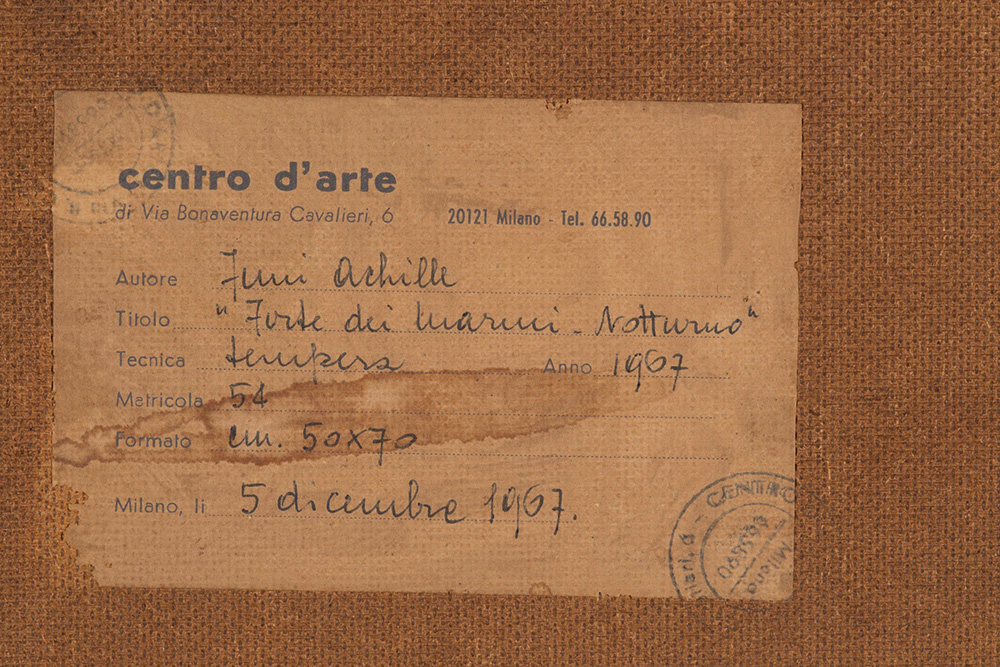 centro d'arte
di Via Bonaventura Cavalieri, 6 20121 Milano - Tel. 66.58.90
Autore Funi Achille
Titolo "Forte dei Marmi - Notturno"
Tecnica tempera Anno 1967
Matricola 54
Formato cm. 50x70
Milano, li 5 dicembre 1967.
CENTRO
665890
Milano